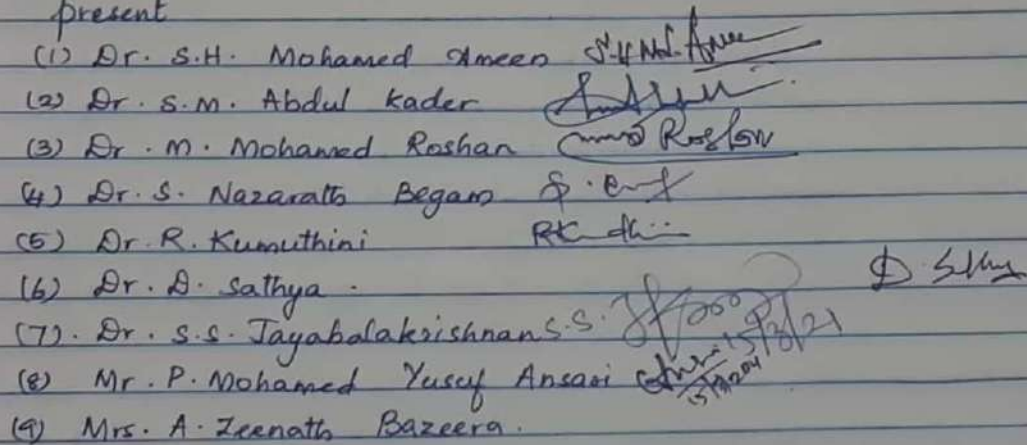 present
(1) Dr. S.H. Mohamed Ameen S.H Md. Ameen
(2) Dr. S.M. Abdul Kader
(3) Dr. M. Mohamed Roshan Roshan
(4) Dr. S. Nazarath Begam
(5) Dr. R. Kumuthini
(6) Dr. D. Sathya.
(7). Dr. S.S. Jayabalakrishnan S.S. 15/3/21
(8) Mr. P. Mohamed Yusuf Ansari
(9) Mrs. A. Zeenath Bazeera.